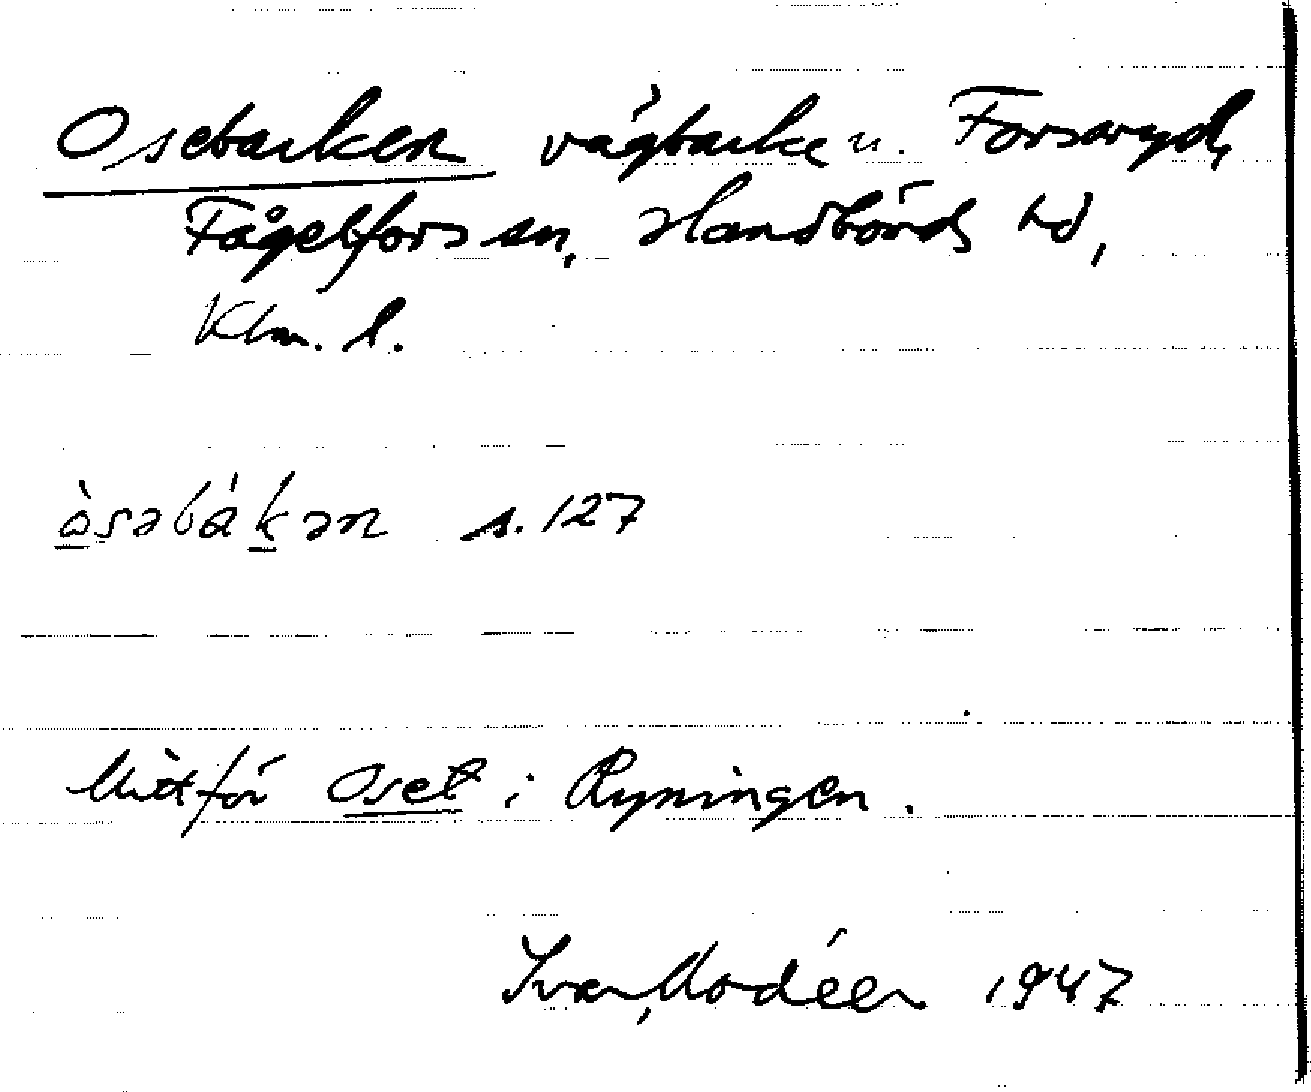 Osebacken vägbacke n. Forsaryd,
Fågelfors sn, Handbörds hd,
Klm. l.
s. 127
Mitt för Oset i Ryningen.
Ivar Modéer 1947